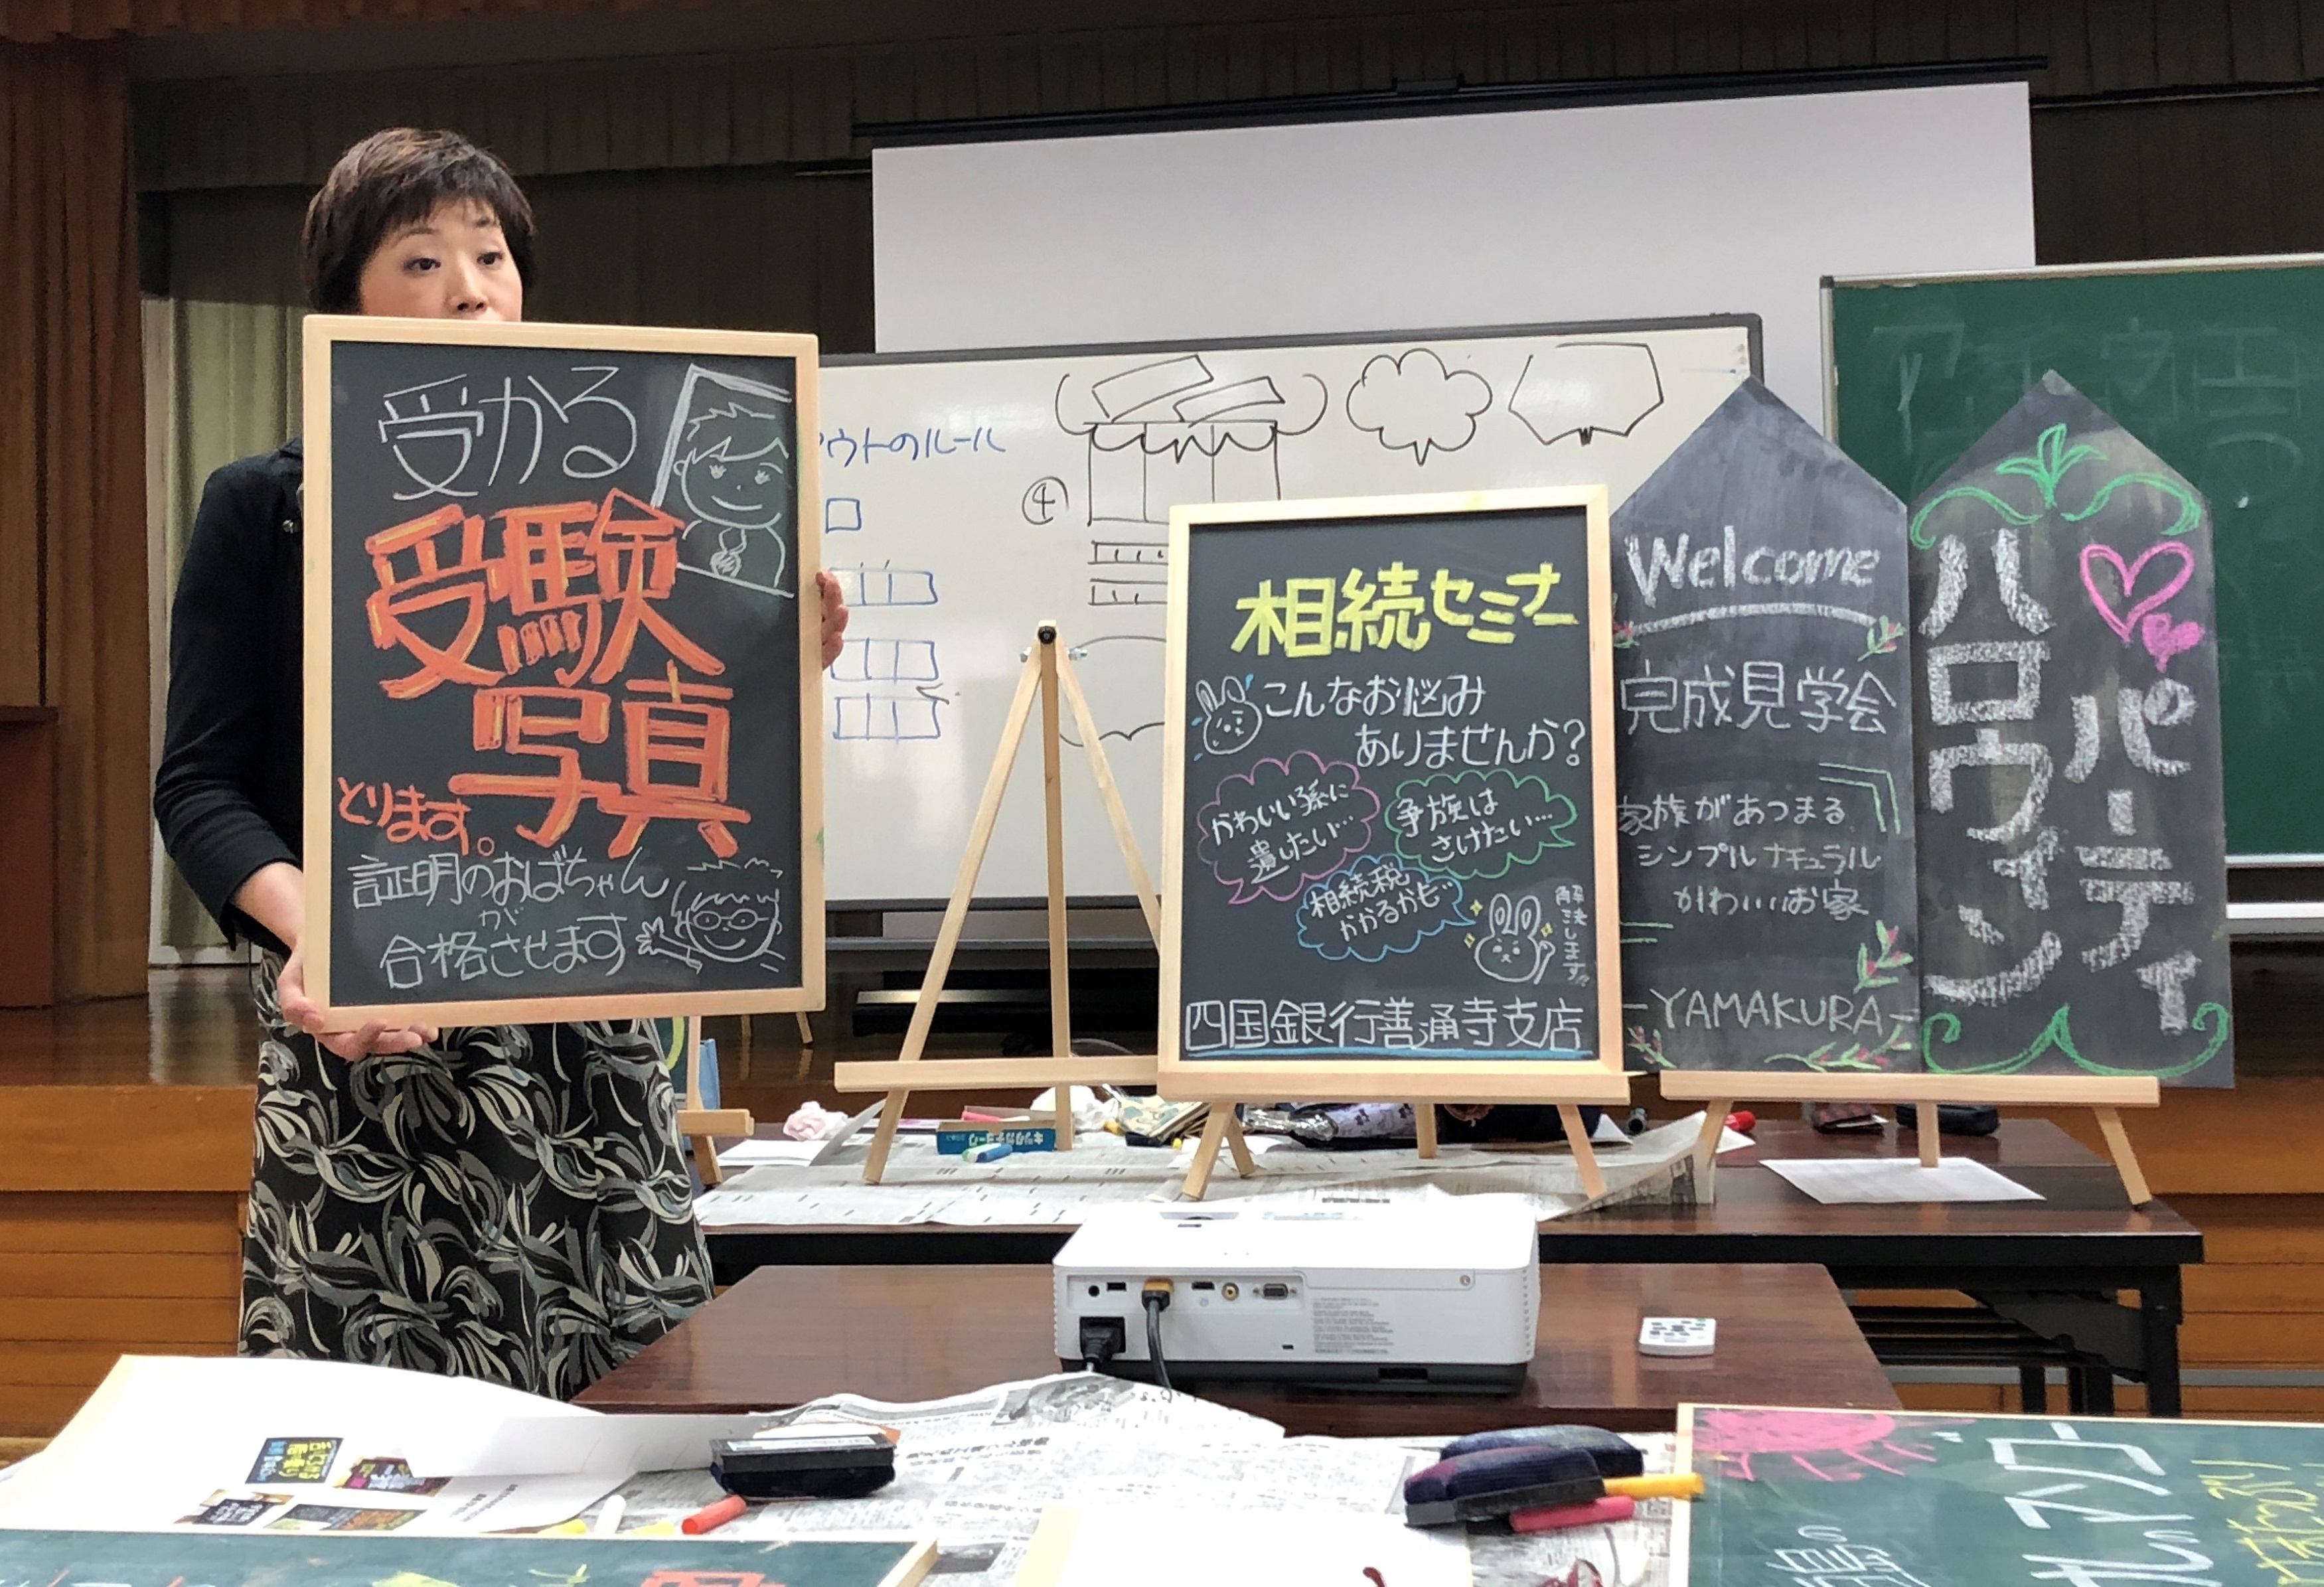 受かる
受験
写真
とります。
証明のおばちゃん
が
合格させます
ウトのルール
④
相続セミナー
こんなお悩み
ありませんか?
かわいい孫に
遺したい…
争族は
さけたい…
相続税
かかるかも
解決します!!
四国銀行善通寺支店
Welcome
完成見学会
家族があつまる
シンプルナチュラル
かわいいお家
-YAMAKURA-
ハロウィン
パーティ
キットパチョーク